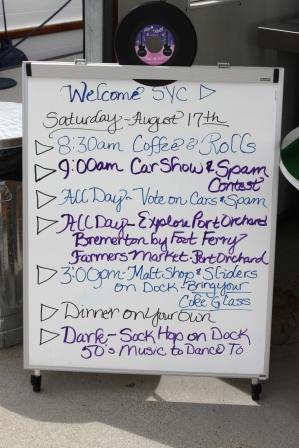 Welcome SYC
Saturday - August 17th
8:30am Coffee & Rolls
9:00am Car Show & Spam
Contest
All Day - Vote on Cars & Spam
All Day - Explore Port Orchard
Bremerton by Foot Ferry
Farmers Market - Port Orchard
3:00pm - Malt Shop & Sliders
on Dock - Bring your
Coke Glass
Dinner on Your Own
Dark - Sock Hop on Dock
50's Music to Dance To